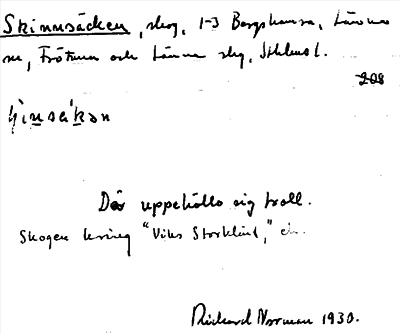 Skinnsäcken, skog, 1-3 Bergshamra, Länna
m, Frötuna och Länna slg, Sthlms l.
208
Där uppehöllo sig troll.
Skogen kring "Viks Storklint,"
Rickard Norman 1930.